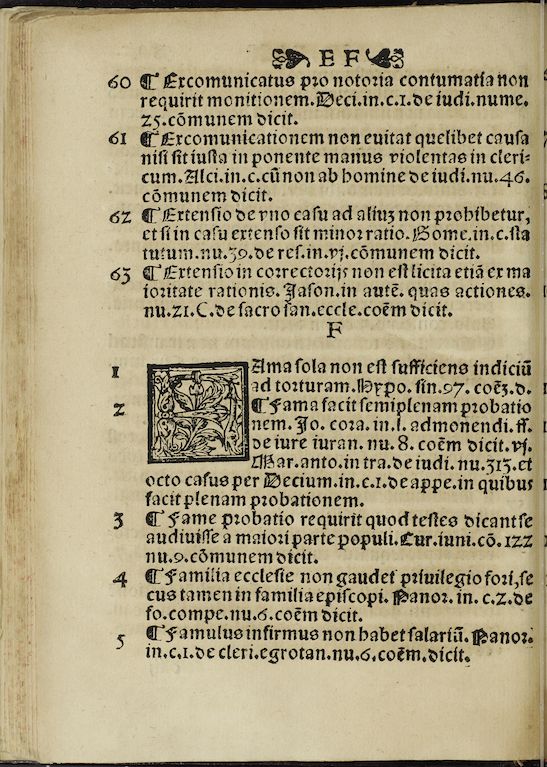 E F
60 ¶ Excomunicatus pro notoria contumatia non
requirit monitionem. Deci. in. c. 1. de iudi. nume.
25. cōmunem dicit.
61 ¶ Excomunicationem non euitat quelibet causa
nisi sit iusta in ponente manus violentas in cleri-
cum. Alci. in. c. cū non ab homine de iudi. nu. 46.
cōmunem dicit.
62 ¶ Extensio de vno casu ad aliuʒ non prohibetur,
et si in casu extenso sit minor ratio. Gome. in. c. sta
tutum. nu. 39. de res. in. vj. cōmunem dicit.
63 ¶ Extensio in correctorijs non est licita etiā ex ma
ioritate rationis. Jason. in autē. quas actiones.
nu. 21. C. de sacro san. eccle. coēm dicit.
F
1 FAma sola non est sufficiens indiciū
ad torturam. Hypo. sin. 97. coēʒ. d.
2 ¶ Fama facit semiplenam probatio
nem. Jo. cora. in. l. admonendi. ff.
de iure iuran. nu. 8. coēm dicit. vj.
Mar. anto. in tra. de iudi. nu. 313. et
octo casus per Decium. in. c. 1. de appe. in quibus
facit plenam probationem.
3 ¶ Fame probatio requirit quod testes dicant se
audiuisse a maiori parte populi. Cur. iuni. cō. 122
nu. 9. cōmunem dicit.
4 ¶ Familia ecclesie non gaudet priuilegio fori, se
cus tamen in familia episcopi. Panor. in. c. 2. de
fo. compe. nu. 6. coēm dicit.
5 ¶ Famulus infirmus non habet salariū. Panor.
in. c. 1. de cleri. egrotan. nu. 6. coēm. dicit.